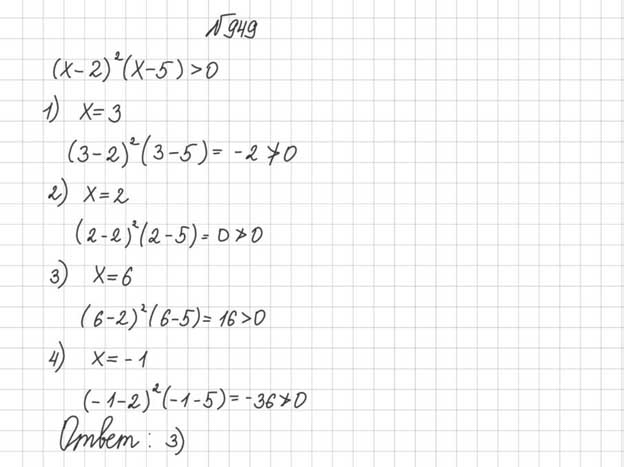 №949
(x-2)²(x-5)>0
1) x=3
(3-2)²(3-5)= -2 ≯ 0
2) x=2
(2-2)²(2-5)= 0 ≯ 0
3) x=6
(6-2)²(6-5)= 16>0
4) x= -1
(-1-2)²(-1-5)= -36 ≯ 0
Ответ: 3)